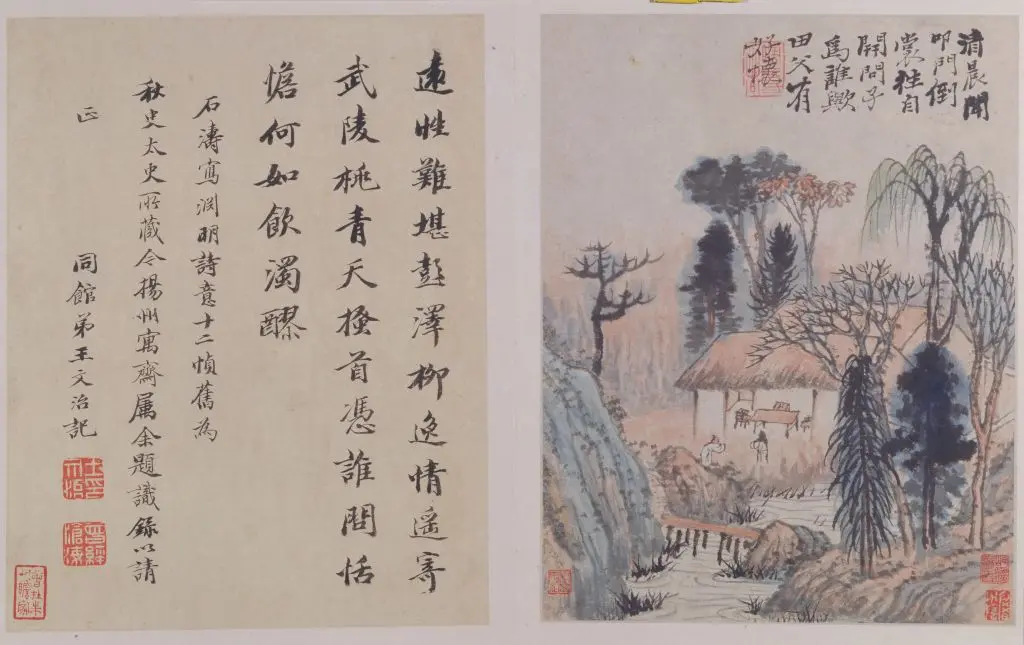 清晨聞
叩門倒
裳往自
開問子
為誰歟
田父有
好懷
遠性難堪彭澤柳逸情遥寄
武陵桃青天搔首憑誰問恬
憺何如飲濁醪
石濤寫渕明詩意十二幀舊為
秋史太史所藏今揚州寓齋属余題識錄以請
正
同館弟王文治記
曾經滄海